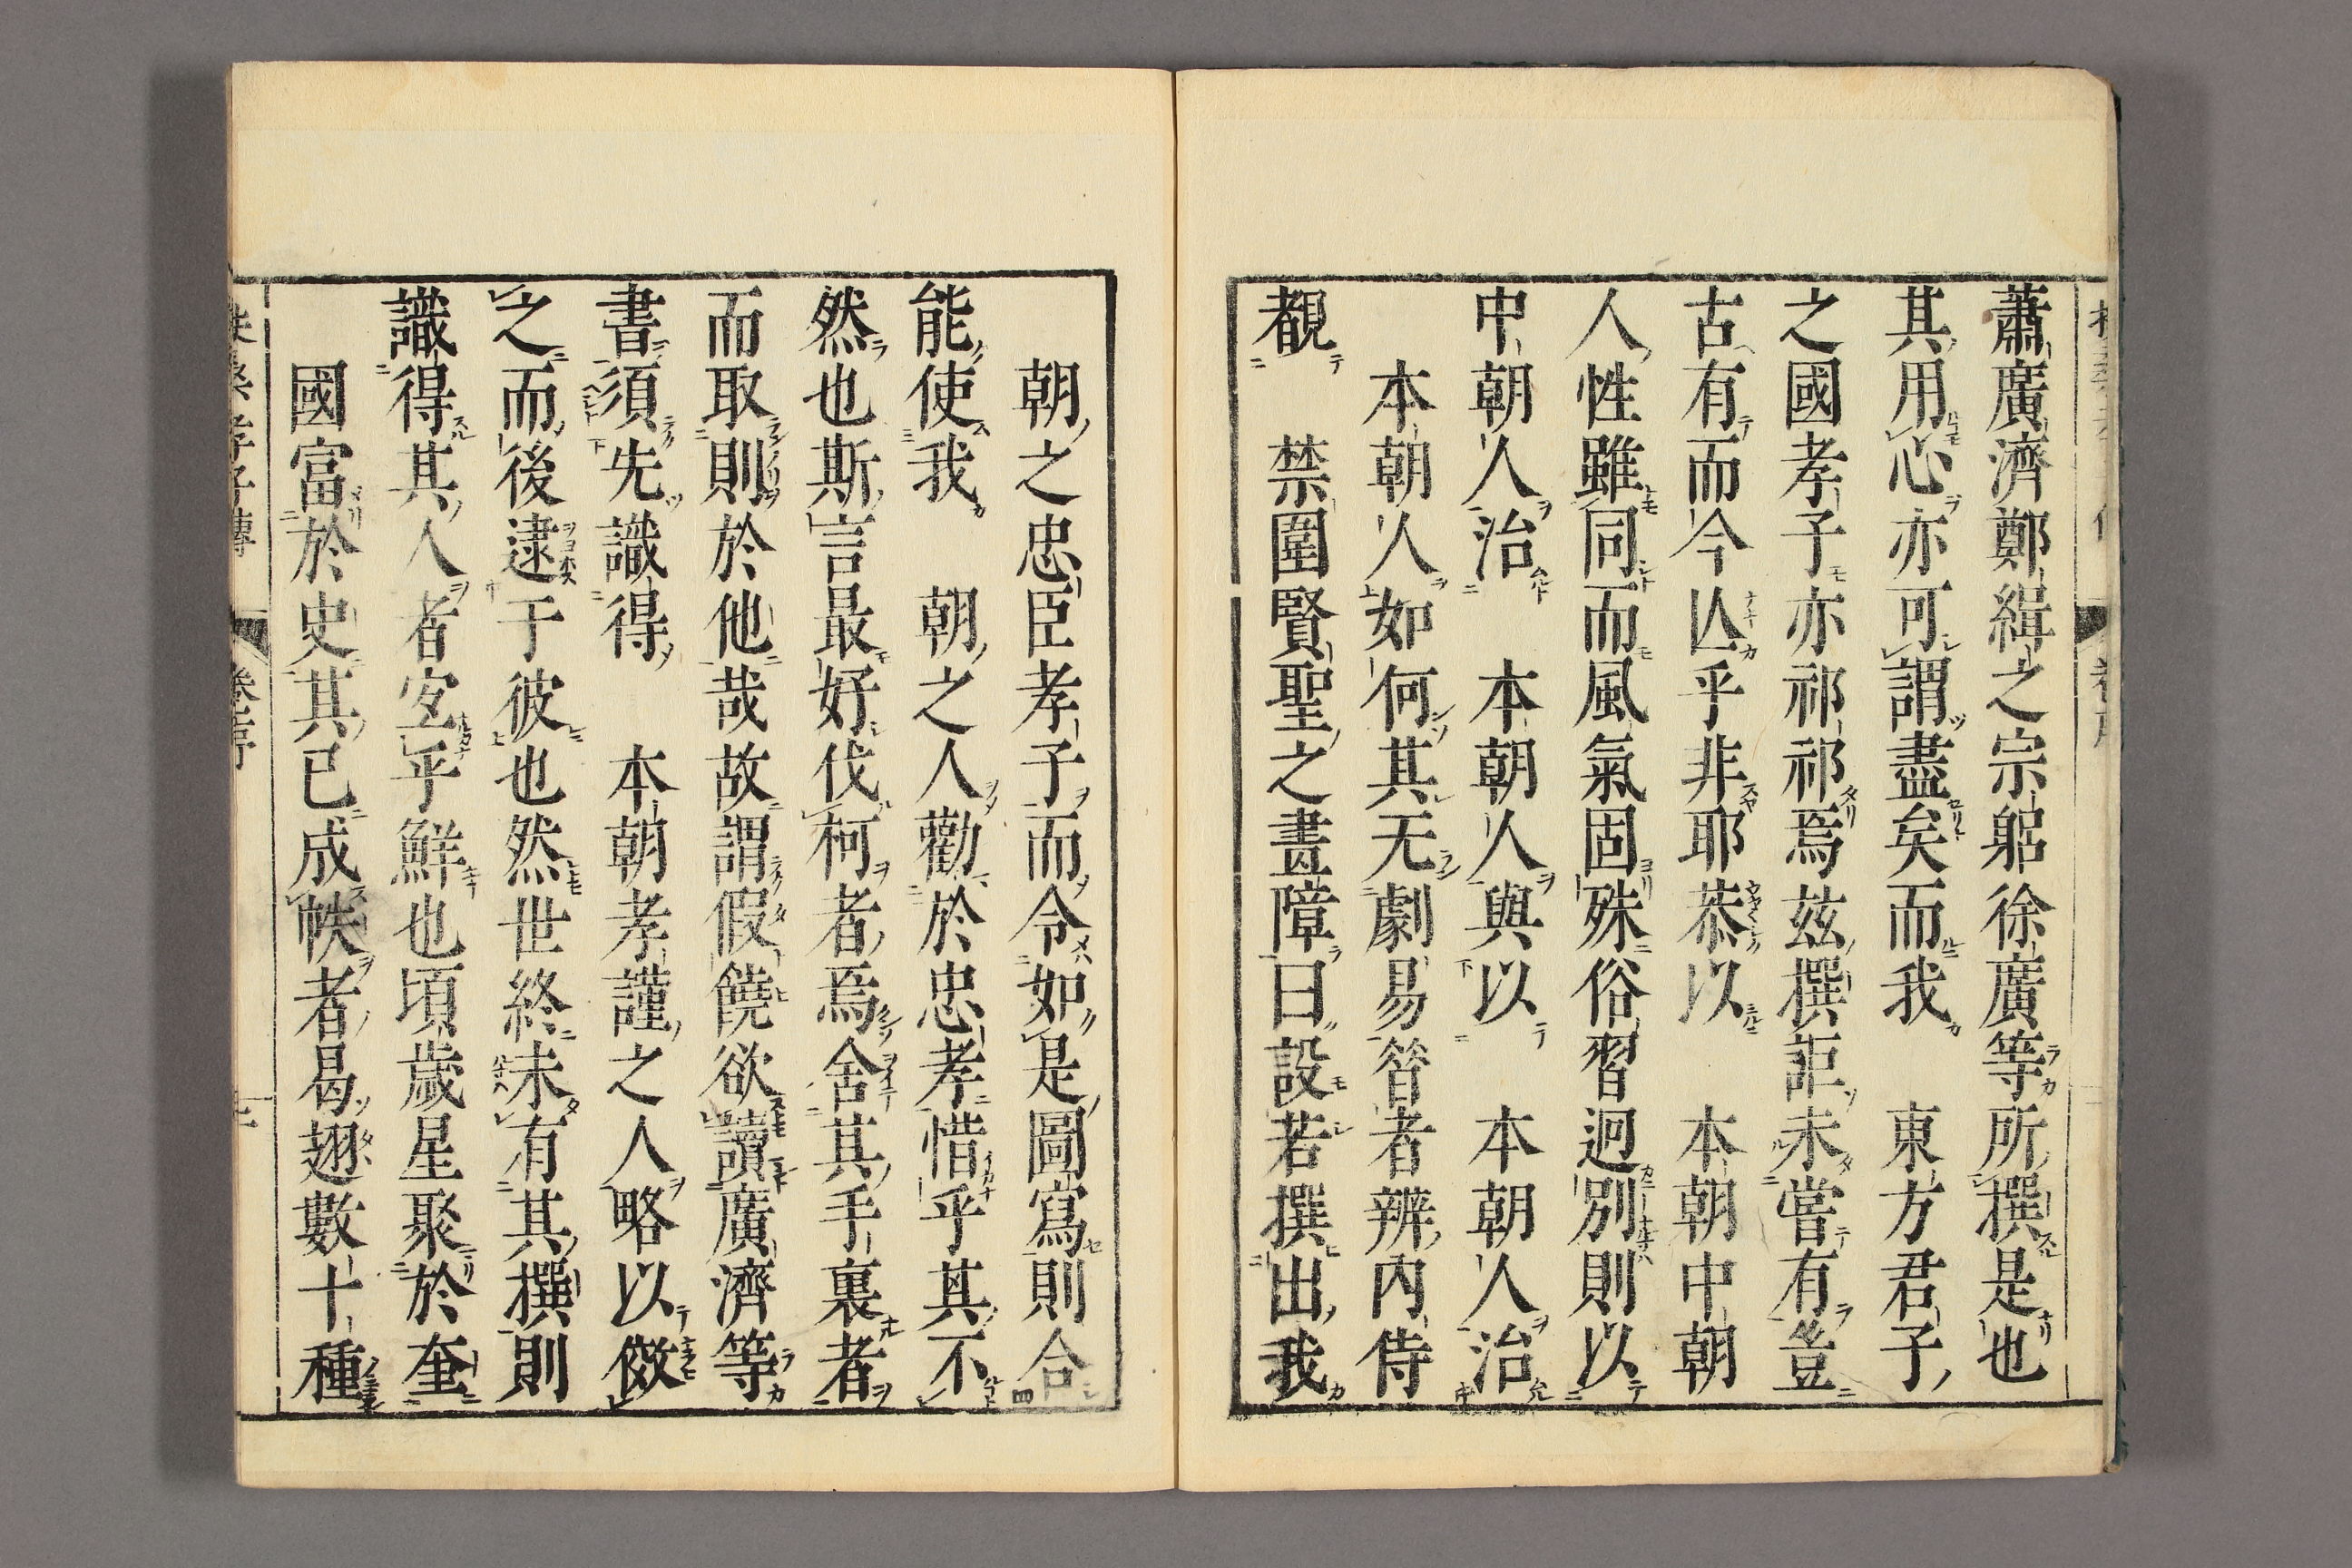 蕭廣濟鄭緝之宗躬徐廣等所撰是也
其用心亦可謂盡矣而我　東方君子
之國孝子亦祁祁焉茲撰詎未嘗有豈
古有而今亾乎非耶恭以　本朝中朝
人性雖同而風氣固殊俗習迥別則以
中朝人治　本朝人與以　本朝人治
本朝人如何其无劇易昝者辨內侍
覩　禁圍賢聖之畫障曰設若撰出我
朝之忠臣孝子而令如是圖寫則合
能使我　朝之人勸於忠孝惜乎其不
然也斯言最好伐柯者焉舍其手裏者
而取則於他哉故謂假饒欲讀廣濟等
書須先識得　本朝孝謹之人略以傚
之而後逮于彼也然世終未有其撰則
識得其人者寔乎鮮也頃歲星聚於奎
國富於史其已成帙者曷翅數十種
孝子傳